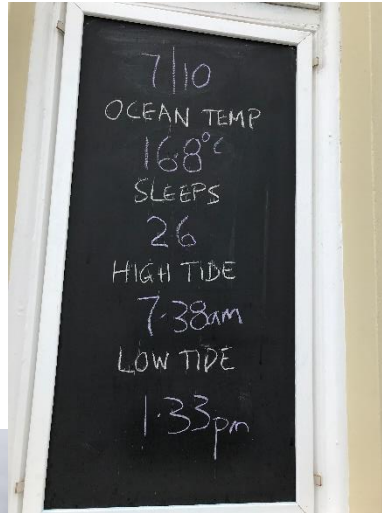 7/10
OCEAN TEMP
16.8°C
SLEEPS
26
HIGH TIDE
7.38am
LOW TIDE
1.33pm